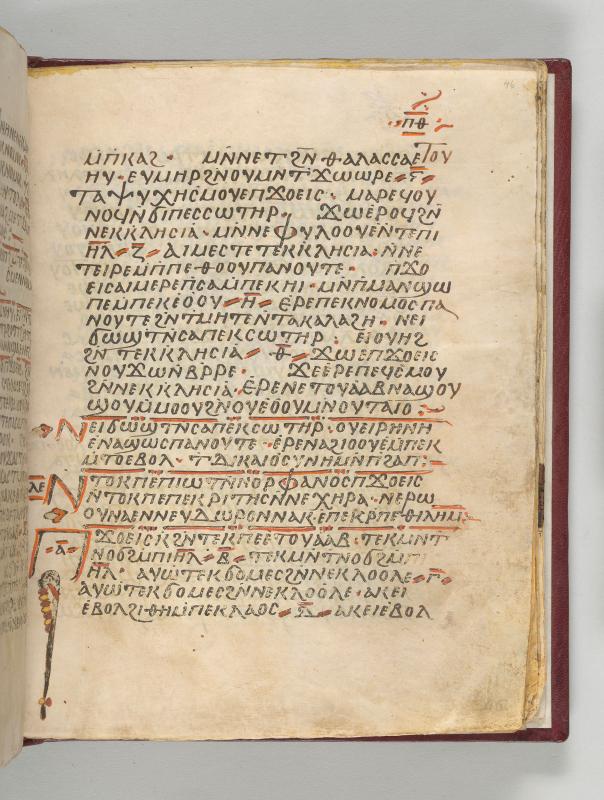 46
ⲡⲑ
ⲙ̄ⲡⲕⲁϩ· ⲙⲛ̄ⲛⲉⲧϩⲛ̄ⲑⲁⲗⲁⲥⲥⲁⲉⲧⲟⲩ
ⲏⲩ· ⲉⲩⲙⲏⲣϩⲛⲟⲩⲙⲛⲧϫⲱⲱⲣⲉ ⲋ̄
ⲧⲁⲯⲩⲭⲏⲥⲙⲟⲩⲉⲡϫⲟⲉⲓⲥ· ⲙⲁⲣⲉϥⲟⲩ
ⲛⲟϥⲛ̄ϭⲓⲡⲉⲥⲥⲱⲧⲏⲣ· ϫⲱⲉⲣⲟϥϩⲛ̄
ⲛⲉⲕⲕⲗⲏⲥⲓⲁ· ⲙⲛ̄ⲛⲉⲫⲩⲗⲟⲟⲩⲉⲛ̄ⲧⲉⲡⲓ
ⲏ̄ⲗ̄ ⲍ̄ ⲁⲓⲙⲉⲥⲧⲉⲧⲉⲕⲕⲗⲏⲥⲓⲁ· ⲛ̄ⲛⲉ
ⲧⲉⲓⲣⲉⲙ̄ⲡⲡⲉⲑⲟⲟⲩⲡⲁⲛⲟⲩⲧⲉ· ⲡϫⲟ
ⲉⲓⲥⲁⲓⲙⲉⲣⲉⲡⲥⲁⲙ̄ⲡⲉⲕⲏⲓ· ⲙⲛ̄ⲡⲙⲁⲛϣⲱ
ⲡⲉⲙ̄ⲡⲉⲕⲉⲟⲟⲩ ⲏ̄ ⲉⲣⲉⲡⲉⲕⲛⲟⲙⲟⲥⲡⲁ
ⲛⲟⲩⲧⲉϩⲛ̄ⲧⲙⲏⲧⲉⲛ̄ⲧⲁⲕⲁⲗⲁϩⲏ· ⲛⲉⲓ
ϭⲱϣⲧⲛ̄ⲥⲁⲡⲉⲕⲥⲱⲧⲏⲣ· ⲉⲓⲟⲩⲏϩ
ϩⲛ̄ ⲧⲉⲕⲕⲗⲏⲥⲓⲁ ⲑ̄ ϫⲱⲉⲡϫⲟⲉⲓⲥ
ⲛⲟⲩϫⲱⲛ̄ⲃⲣⲣⲉ· ϫⲉⲉⲣⲉⲡⲉϥⲥⲙⲟⲩ
ϩⲛ̄ⲛⲉⲕⲕⲗⲏⲥⲓⲁ· ⲉⲣⲉⲛⲉⲧⲟⲩⲁⲁⲃⲛⲁϣⲟⲩ
ϣⲟⲩⲙ̄ⲙⲟⲟⲩϩⲛⲟⲩⲉⲟⲟⲩⲙⲛⲟⲩⲧⲁⲓⲟ
ⲛⲉⲓϭⲱϣⲧⲛ̄ⲥⲁⲡⲉⲕⲥⲱⲧⲏⲣ· ⲟⲩⲉⲓⲣⲏⲛⲏ
ⲉⲛⲁϣⲱⲥⲡⲁⲛⲟⲩⲧⲉ· ⲉⲣⲉⲛⲁϩⲓⲟⲟⲩⲉⲙ̄ⲡⲉⲕ
ⲙ̄ⲧⲟⲉⲃⲟⲗ· ⲧⲇⲓⲕⲁⲓⲟⲥⲩⲛⲏⲙⲛ̄ⲡϩⲁⲡ
ⲛ̄ⲧⲟⲕⲡⲉⲡⲓⲱⲧⲛ̄ⲛⲟⲣⲫⲁⲛⲟⲥⲡϫⲟⲉⲓⲥ
ⲛ̄ⲧⲟⲕⲡⲉⲡⲉⲕⲣⲓⲧⲏⲥⲛ̄ⲛⲉⲭⲏⲣⲁ· ⲛⲉⲣⲱ
ⲟⲩⲛⲁⲉⲛⲛⲉⲩⲇⲱⲣⲟⲛⲛⲁⲕ· ⲉⲡⲉⲕⲣⲡⲉⲑⲓⲗⲏⲙ
ⲡϫⲟⲉⲓⲥⲕϩⲛ̄ⲧⲉⲕⲡⲉⲉⲧⲟⲩⲁⲁⲃ· ⲧⲉⲕⲙⲛⲧ
ⲁ̄ ⲛⲟϭϩⲙ̄ⲡⲓⲏ̄ⲗ̄ ⲃ̄ ⲧⲉⲕⲙⲛⲧⲛⲟϭϩⲙ̄ⲡⲓ
ⲏ̄ⲗ̄· ⲁⲩⲱⲧⲉⲕϭⲟⲙⲉⲥϩⲛ̄ⲛⲉⲕⲗⲟⲟⲗⲉ ⲅ̄
ⲁⲩⲱⲧⲉⲕϭⲟⲙⲉⲥϩⲛ̄ⲛⲉⲕⲗⲟⲟⲗⲉ· ⲁⲕⲉⲓ
ⲉⲃⲟⲗϩⲓⲑⲏⲙ̄ⲡⲉⲕⲗⲁⲟⲥ ⲇ̄ ⲁⲕⲉⲓⲉⲃⲟⲗ